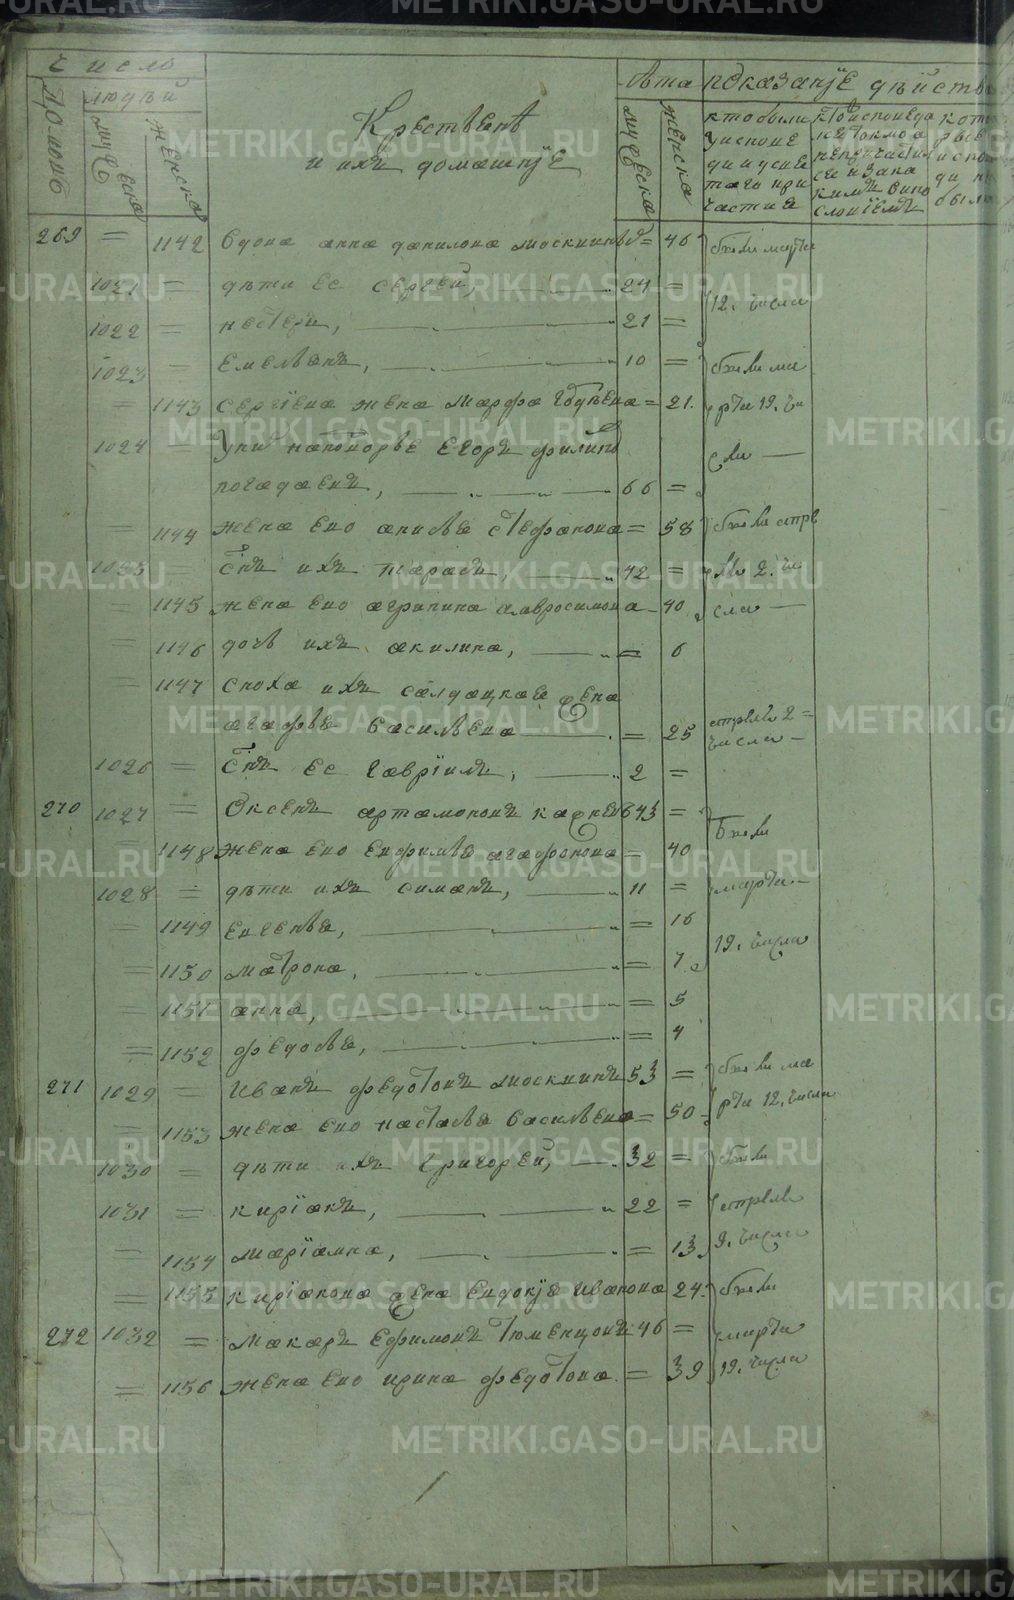 Число
Домовъ
людей
мужеска
женска
Крестьянѣ
и ихъ домашнїе
Лѣта
мужеска
женска
показанїе дѣйств
кто были
у исповѣ
ди и у свя
таго при
частия
кто исповеда
не токмо а
не причасти
ся и за ка
кимъ вино
словїемъ
кото
рые
испо
ди н
были
269 = 1142 вдова анна данилова москвиных = 46 были марта
1021 = дѣти ее сергей, 24 = 12. числа
1022 = нестеръ, 21 =
1023 = емельянъ, 10 = были ма
= 1143 сергїева жена марфа = 21. рта 19. чи
1024 = егоръ филипо сла
погадаевъ, 66 =
= 1144 жена ево анисья стефанова = 58 были апре
= снъ ихъ тарасъ, 42 = ля 2. чи
= 1145 жена ево агрипина амвросимова 40 сла
= 1146 дочь ихъ акилина, = 6
= 1147 сноха ихъ салдацкая жена
агафья васильева = 25 апреля 2 =
числа
1026 = снъ ее гаврїилъ, 2 =
270 1027 = артамоновъ 43 = были
= 1148 жена ево ефимья агафонова = 40
1028 = дѣти ихъ симанъ, 11 = марта
= 1149 евгенья, = 16
= 1150 матрона, = 7 19. числа
= 1151 анна, = 5
= 1152 федосья, = 4
271 1029 = иванъ федотовъ москвинъ 53 = были ма
= 1153 жена ево настасья васильева = 50 рта 12. числа
1030 = дѣти ихъ григорей, 32 = были
1031 = кирїакъ, 22 = апреля
= 1154 марїамна, = 13 9. числа
= 1155 кирїакова жена евдокїя иванова 24. были
272 1032 = макаръ ефимовъ тюменцовъ 46 = марта
= 1156 жена ево ирина федотова = 39 19. числа
METRIKI.GASO-URAL.RU